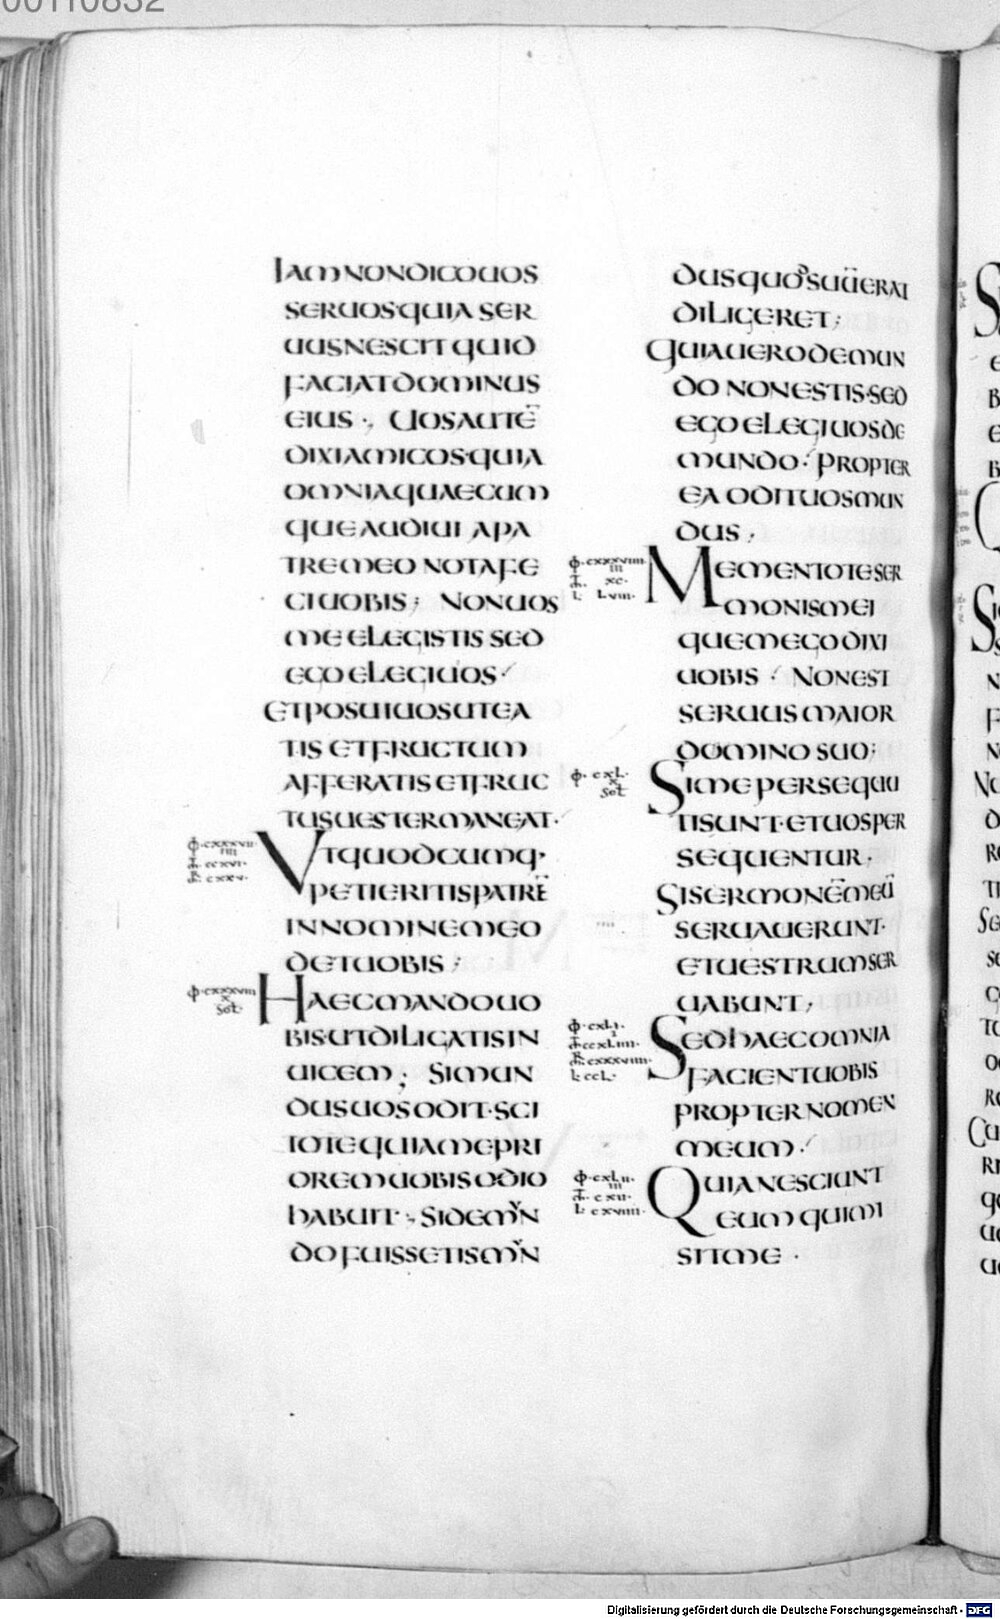 00110832
IAMNONDICOUOS
SERUOS·QUIA SER
UUSNESCIT QUID
FACIATDOMINUS
EIUS·, UOSAUTĒ
DIXIAMICOS·QUIA
OMNIAQUAECUM
QUEAUDIUI APA
TREMEO NOTAFE
CIUOBIS; NONUOS
ME ELEGISTIS SED
EGOELEGIUOS·
ETPOSUIUOSUTEA
TIS ETFRUCTUM
AFFERATIS ETFRUC
TUSUESTERMANEAT·
UTQUODCUMQ·
PETIERITISPATRĒ
INNOMINEMEO
DETUOBIS;
HAECMANDOUO
BISUTDILIGATISIN
UICEM; SIMUN
DUSUOSODIT·SCI
TOTEQUIAMEPRI
OREMUOBISODIO
HABUIT·, SIDEMUN
DOFUISSETISMUN
DUSQUODSUŪERAT
DILIGERET;
QUIAUERODEMUN
DO NONESTIS·SED
EGOELEGIUOSDE
MUNDO· PROPTER
EA ODITUOSMUN
DUS;
MEMENTOTESER
MONISMEI
QUEMEGODIXI
UOBIS· NONEST
SERUUSMAIOR
DOMINO SUO;
SIMEPERSEQUU
TISUNT·ETUOSPER
SEQUENTUR·
SISERMONĒMEŪ
SERUAUERUNT·
ETUESTRUMSER
UABUNT;
SEDHAECOMNIA
FACIENTUOBIS
PROPTERNOMEN
MEUM·
QUIANESCIUNT
EUMQUIMI
SITME·
Digitalisierung gefördert durch die Deutsche Forschungsgemeinschaft - DFG